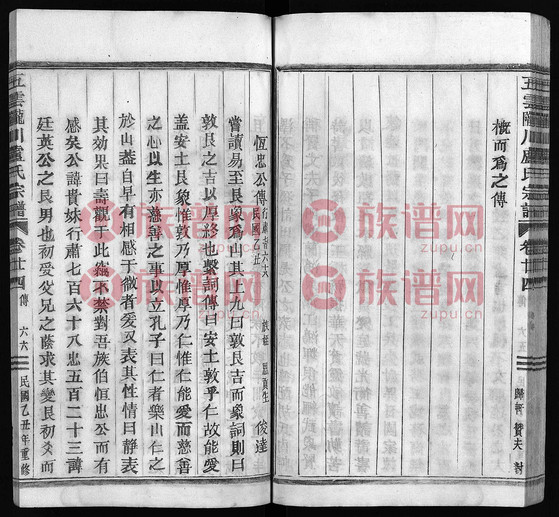 五雲隴川盧氏宗譜
卷廿四
概而為之傳
歸軒 贊夫 討
恆忠公傳
民國乙丑
俊達
嘗讀易至艮象為山其上九曰敦艮吉而象詞則曰
敦艮之吉以厚終也繫詞傳曰安土敦乎仁故能愛
蓋安土艮象惟敦乃厚惟厚乃仁惟仁能愛而慈善
之心以生亦慈善之事以立孔子曰仁者樂山仁之
於山蓋自早有相感于微者爰又表其性情曰靜表
其效果曰壽觀于此竊不禁對吾族伯恒忠公而有
感矣公諱貴妹行肅七百六十八忠五百二十三諱
廷英公之長男也初受父兄之蔭求其變艮初爻而
五雲隴川盧氏宗譜
卷廿四
傳
六六
民國乙丑年重修